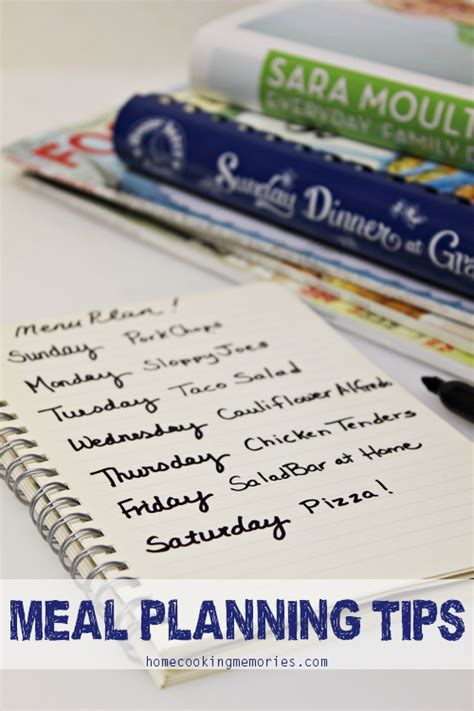 SARA MOULT
EVERYDAY FAMILY
Sunday Dinner at Gra
FO
Menu Plan!
Sunday Pork Chops
Monday Sloppy Joes
Tuesday Taco Salad
Wednesday Cauliflower Alfredo
Thursday Chicken Tenders
Friday Salad Bar at Home
Saturday Pizza!
MEAL PLANNING TIPS
homecookingmemories.com